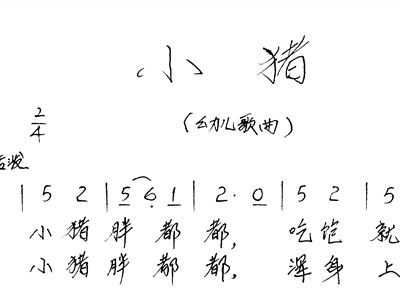 小猪
2/4
(幼儿歌曲)
| 5 2 | 5 6 1 | 2· 0 | 5 2 | 5
小猪胖都都, 吃饱就
小猪胖都都, 浑身上